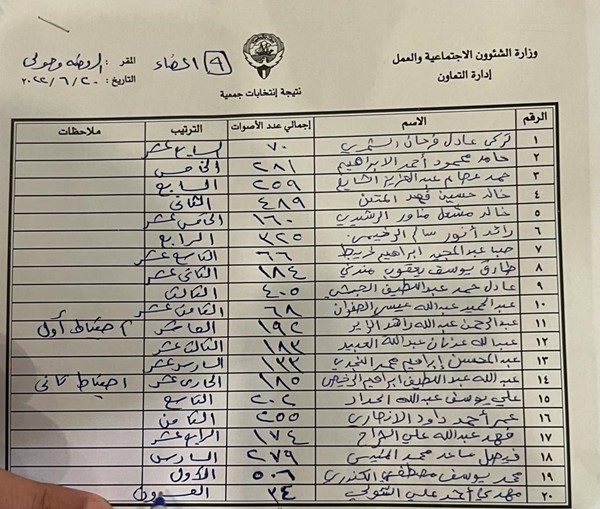 وزارة الشئوون الاجتماعية والعمل
إدارة التعاون
٩ اعضاء
المقر : الروضة وحولي
التاريخ : ٢٠٢٢/٦/٢٠
نتيجة إنتخابات جمعية
الرقم الاسم إجمالي عدد الأصوات الترتيب ملاحظات
١ تركي عادل فرحان الشمري ٧٠ السابع عشر
٢ حامد محمود أحمد الابراهيم ٢٨١ الخامس
٣ حمد عصام عبدالعزيز الشايع ٢٥٩ السابع
٤ خالد حسين فهد ٤٨٩ الثاني
٥ خالد مشعل مناور الرشيدي ١٦٠ الخامس عشر
٦ رائد أنور سالم ٣٢٥ الرابع
٧ عبدالمجيد ابراهيم ٦٦ التاسع عشر
٨ طارق يوسف يعقوب ١٨٤ الثاني عشر
٩ عادل حمد عبداللطيف ٤٠٥ الثالث
١٠ عبدالحميد عبدالله عيسى الصفوان ٦٨ الثامن عشر
١١ عبدالرحمن عبدالله راشد ١٩٢ العاشر احتياط أول
١٢ عبدالله عدنان عبدالله العبيد ١٨٣ الثالث عشر
١٣ عبدالمحسن إبراهيم ١٣٣ السادس عشر
١٤ عبدالله عبداللطيف ابراهيم ١٨٥ الحادي عشر احتياط ثاني
١٥ علي يوسف عبدالله الحداد ٢٠٢ التاسع
١٦ أحمد داود الانصاري ٢٥٥ الثامن
١٧ فهد عبدالله علي ١٧٤ الرابع عشر
١٨ فيصل محمد ٢٧٩ السادس
١٩ محمد يوسف مصطفى الكندري ٥٠٦ الأول
٢٠ مهدي أحمد علي ٣٤ العشرون